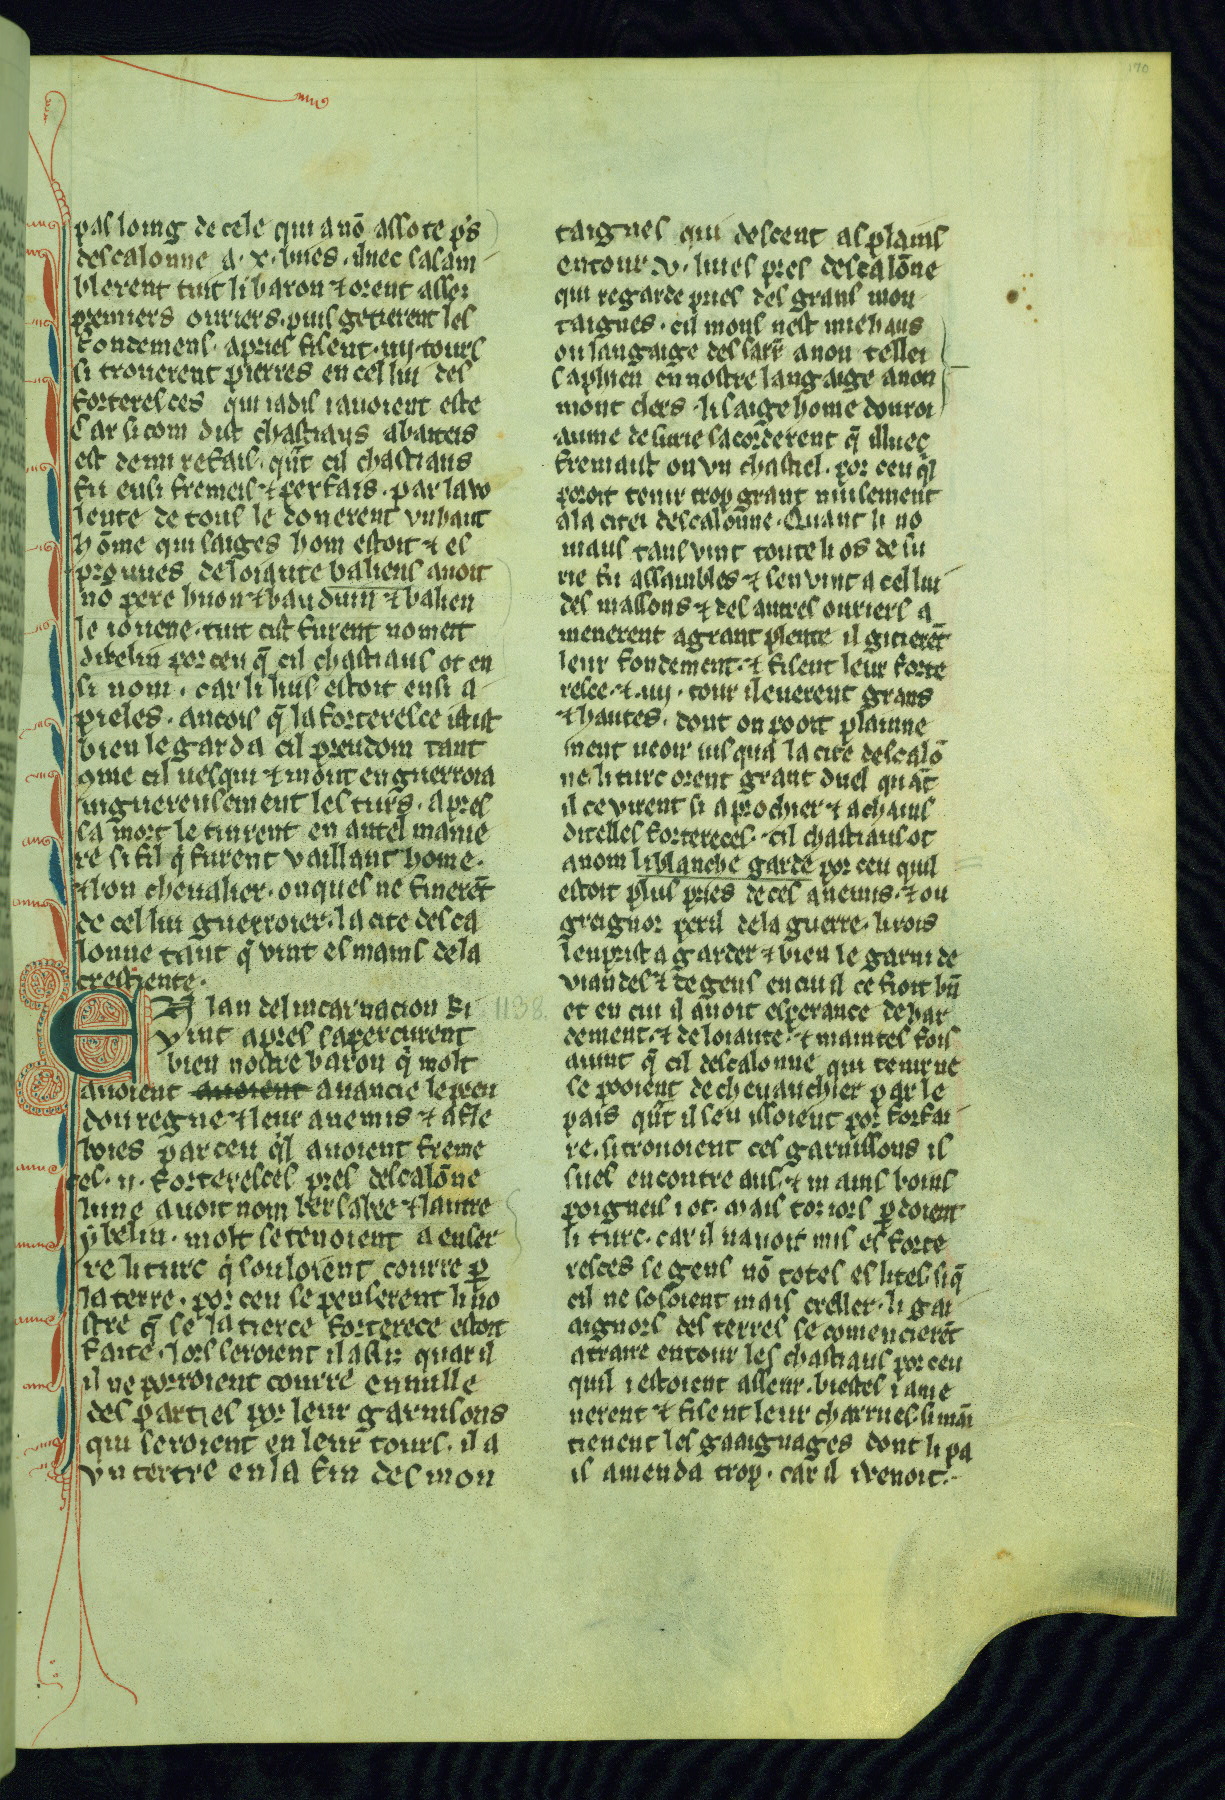 170
pas loing de cele qui a nō assore p̄s
descalonne a .x. liues. illuec sasam
blerent tuit li baron ⁊ orent assez
premiers ouriers. puis geterent les
fondemens. apries fisent .iiij. tours
si trouerent pierres en cel liu des
forteresces qui iadis i auoient este
Car si com dist chastiaus abateis
est demi refais. qn̄t cil chastiaus
fu ensi fremeis ⁊ perfais. par la vo
lente de tous le donerent vn haut
home qui saiges hom estoit ⁊ es
prouues de loiaute baliens auoit
no pere huon ⁊ bauduin ⁊ balien
le iouene. tuit cist furent nomeit
dibelin por ceu q̄ cil chastiaus ot en
si nom. car li lius estoit ensi a
pieles. ancois q̄ la forteresce i fust
bien le garda cil preudom tant
9me cil uesqui ⁊ mout en guerroia
uiguereusement les turs. apres
sa mort le tinrent en autel manie
re si fil q̄ furent vaillant home.
⁊ bon cheualier. onques ne finerēt
de cel liu guerroier. la cite desca
lonne tant q̄ vint es mains de la
crestiente.
EN lan del incarnacion ki 1138.
vint apres sapercurent
bien nostre baron q̄ molt
auoient auoient auancie le preu
dou regne ⁊ leur anemis ⁊ afle
boies par ceu q̄l auoient freme
ces .ij. forteresces pres descalōne
lune auoit nom bersabee ⁊ lautre
ybelin. molt se tenoient a enser
re li turc q̄ souloient courre p̄
la terre. por ceu se penserent li no
stre q̄ se la tierce forterece estoit
faite. lors seroient il asis quar il
il ne porroient courre en nulle
des parties por leur garnisons
qui seroient en leur tours. il a
vn tertre en la fin des mon
taignes qui descent as plains
entour .v. liues pres descalōne
qui regarde pries des grans mon
taignes. cil mons nest mie haus
ou langaige des sarr̄ a non telles
saphien en nostre langaige a non
mont clers. li saige home dou roi
aume de surie sacorderent q̄ illuec
fremaist on vn chastel. por ceu q̄l
poroit tenir trop grant nuisement
a la citei descalonne. Quant li no
maus tans vint toute li os de su
rie fu assambles ⁊ sen vint a cel liu
des massons ⁊ des autres ouriers a
menerent a grant plente il giterēt
leur fondement. ⁊ fisent leur forte
resce. ⁊ .iiij. tour il leuerent grans
⁊ hautes. dont on pooit plainne
ment ueoir iusqua la cite descalō
ne. li turc orent grant duel quāt
il ce virent si aprochier ⁊ achains
ditelles forterecces. cil chastiaus ot
a nom li blanche garde por ceu quil
estoit plus pries de ces anemis. ⁊ ou
greignor peril de la guerre. li rois
lenprist a garder ⁊ bien le garni de
viandes ⁊ de gens en cui il ce fioit bn̄
et en cui il auoit esperance de har
dement. ⁊ de loiaute. ⁊ maintes fois
auint q̄ cil descalonne qui tenir ne
se pooient de cheuauchier par le
pais qn̄t il sen issoient por forfai
re. si trouoient ces garnissons il
lues encontre aus. ⁊ mains bons
poigneis i ot. mais toriors p̄doient
li turc. car il nauoit mis es forte
resces se gens nō totes eslites. si q̄
cil ne sosoient mais cesser. li gai
aignors des terres se comencierēt
a traire entour les chastiaus por ceu
quil i estoient asseur. biestes i ame
nerent ⁊ fisent leur charrues. si mai
tienent les gaaignages dont li pa
is amenda trop. car il i venoit.